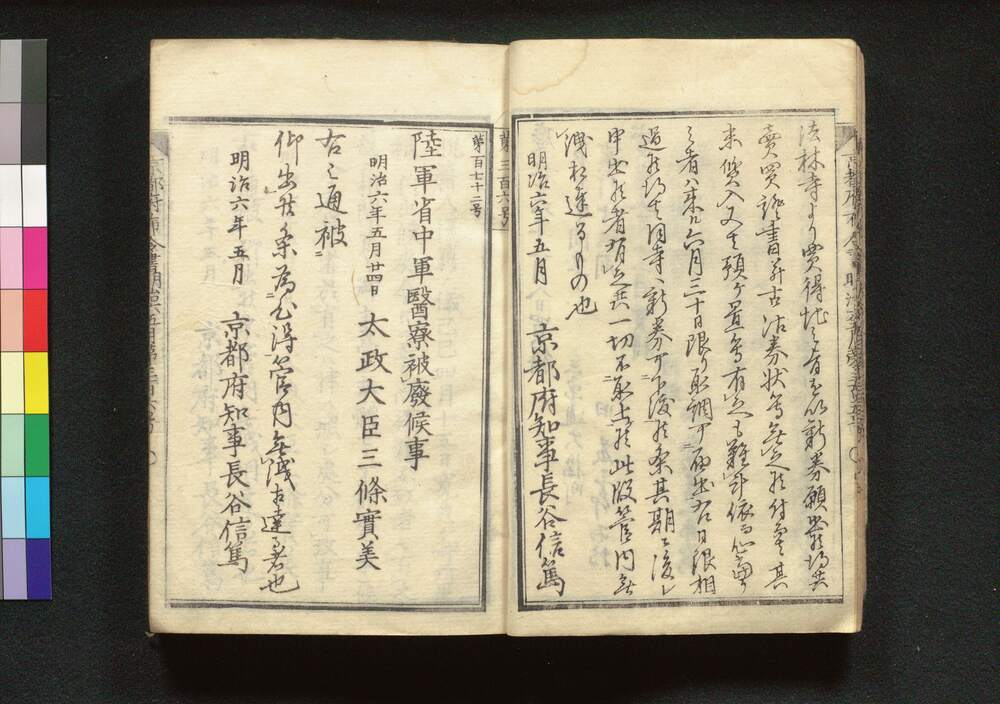 法林寺ゟ買得地之者共以新券願出候得共
賣買證書并古沽券状等無之候付夫其
末質入又ハ預ケ置等有之も難計依而心當
之者ハ来ル六月三十日限り取調可届出右日限相
過候得ハ同寺ヘ新券可下渡候条其期ニ後レ
申出候者有之共一切不取上候此段管内無
洩相達るもの也
明治六年五月
京都府知事長谷信篤
第三百六号
第百七十二号
陸軍省中軍醫寮被廢候事
明治六年五月廿四日
太政大臣三條實美
右之通被
仰出候条為心得管内無洩相達る者也
明治六年五月
京都府知事長谷信篤